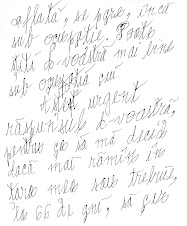 aflată, se pare, încă
sub ocupație. Poate
că d-voastră mai bine
sub ocupația
Aștept urgent
răspunsul d-voastră,
pentru ca să mă decid
dacă mai rămîn în
țara mea sau trebuie,
la 66 de ani, să cer